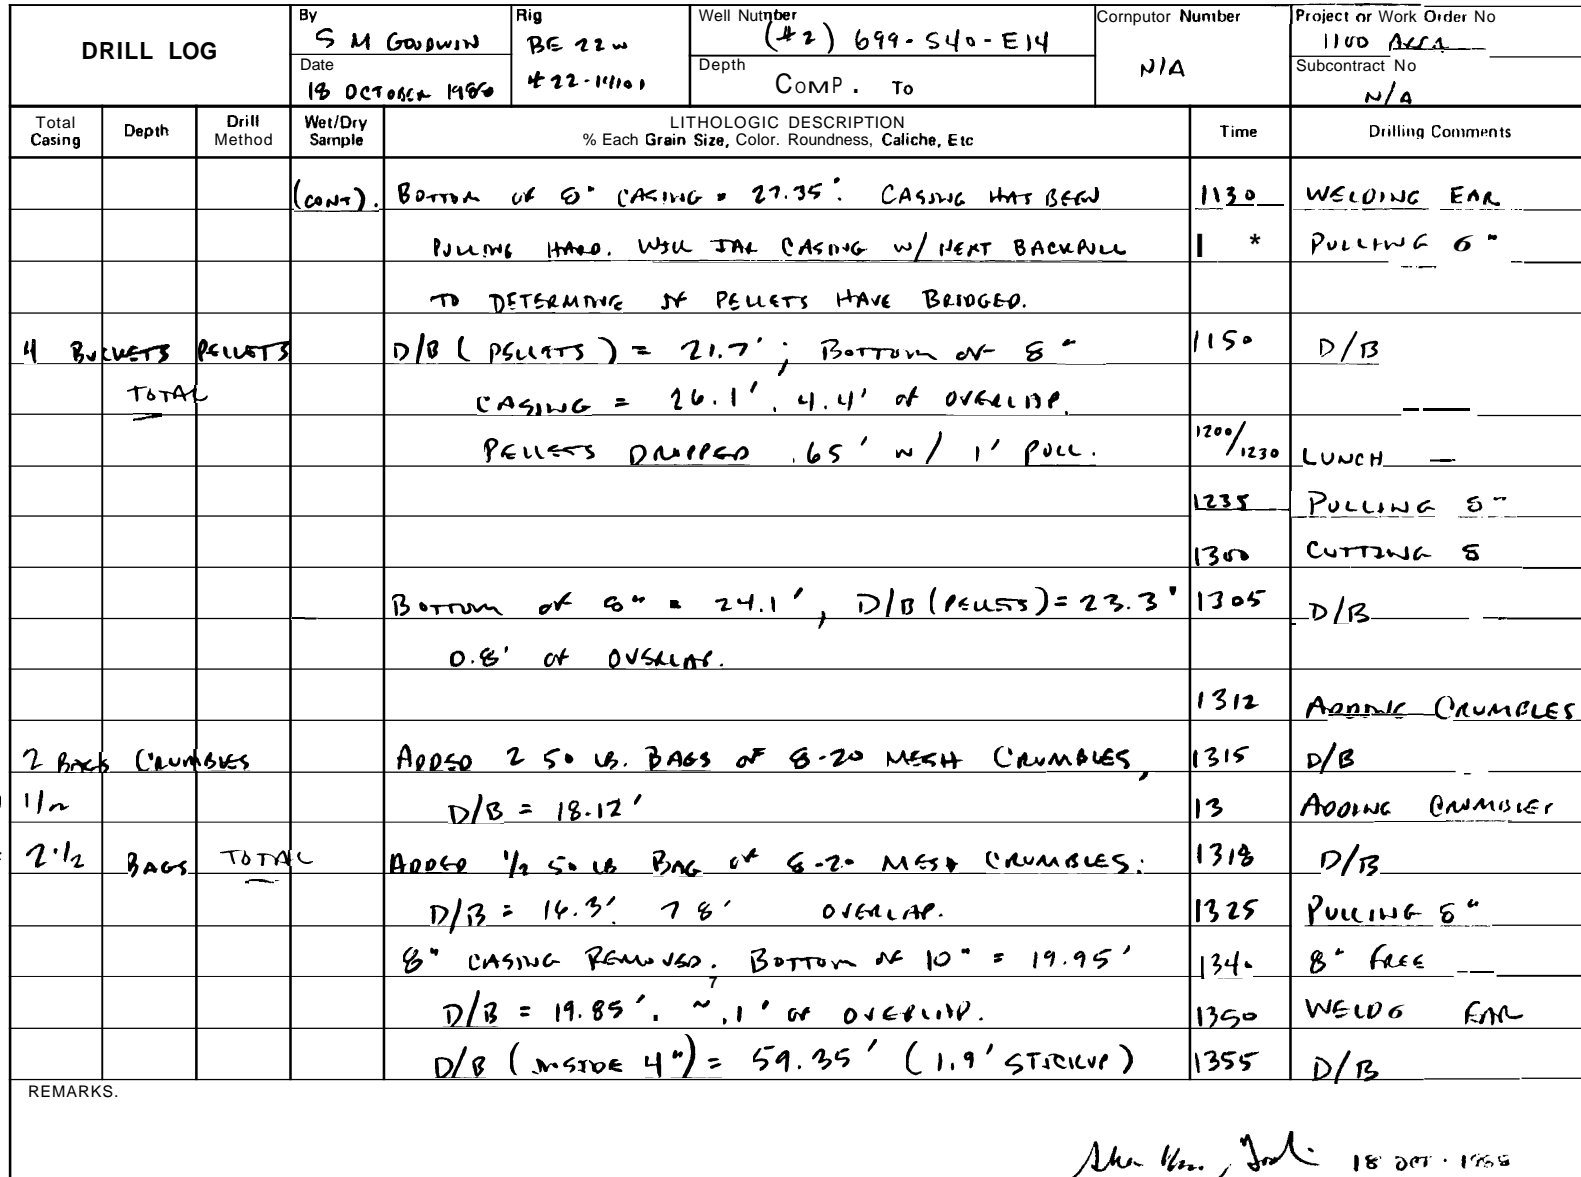 DRILL LOG
By
S M GOODWIN
Date
18 OCTOBER 1988
Rig
BE 22W
# 22-14101
Well Number
(#2) 699-S40-E14
Depth
COMP. To
Computor Number
N/A
Project or Work Order No
1100 AREA
Subcontract No
N/A
Total Casing Depth Drill Method Wet/Dry Sample LITHOLOGIC DESCRIPTION % Each Grain Size, Color. Roundness, Caliche, Etc Time Drilling Comments
(CONT). BOTTOM OF 8" CASING = 27.35'. CASING HAS BEEN 1130 WELDING EAR
PULLING HARD. WILL JAR CASING W/ NEXT BACKPULL PULLING 6"
TO DETERMINE IF PELLETS HAVE BRIDGED.
4 BUCKETS PELLETS D/B (PELLETS) = 21.7'; BOTTOM OF 8" 1150 D/B
TOTAL CASING = 26.1', 4.4' OF OVERLAP.
PELLETS DROPPED .65' W/ 1' PULL. 1200/1230 LUNCH
1235 PULLING 8"
1300 CUTTING 8
BOTTOM OF 8" = 24.1', D/B (PELLETS) = 23.3' 1305 D/B
0.8' OF OVERLAP.
1312 ADDING CRUMBLES
2 BAGS CRUMBLES ADDED 2 50 LB. BAGS OF 8-20 MESH CRUMBLES, 1315 D/B
D/B = 18.12' 13 ADDING CRUMBLES
2 1/2 BAGS TOTAL ADDED 1/2 50 LB BAG OF 8-20 MESH CRUMBLES. 1318 D/B
D/B = 16.3'. 7 8' OVERLAP. 1325 PULLING 8"
8" CASING REMOVED. BOTTOM OF 10" = 19.95' 1340 8" FREE
D/B = 19.85'. ~.1' OF OVERLAP. 1350 WELDG EAR
D/B (INSIDE 4") = 59.35' (1.9' STICKUP) 1355 D/B
REMARKS.
18 OCT. 1988